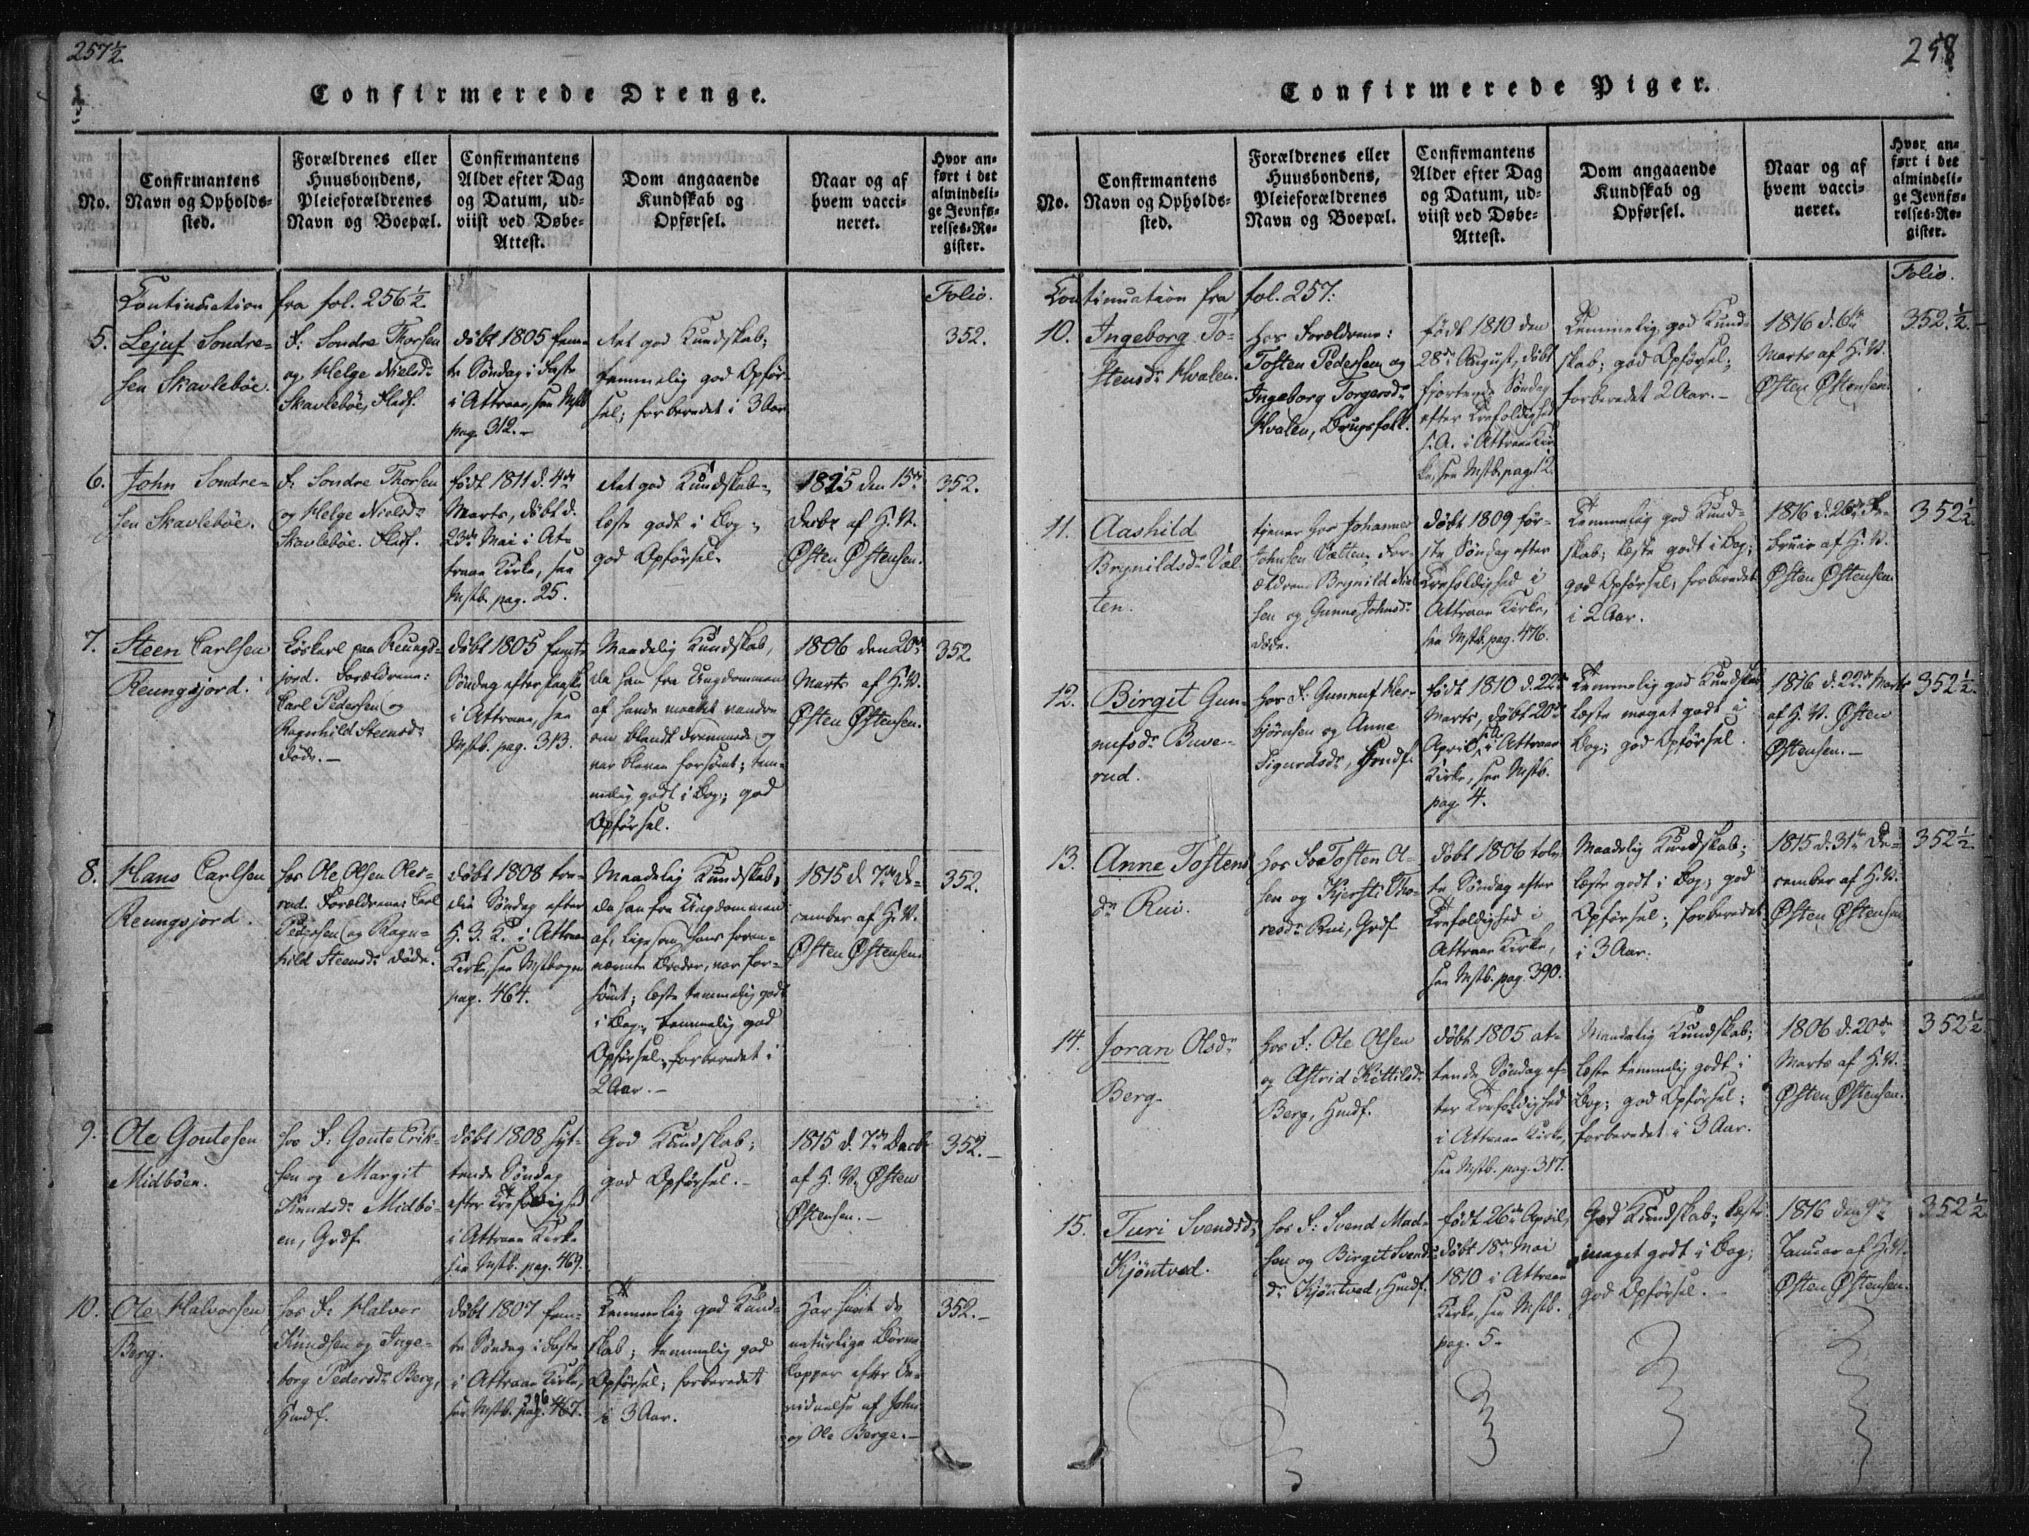 257½
Confirmerede Drenge.
No.
Confirmantens
Navn og Opholds-
sted.
Forældrenes eller
Huusbondens,
Pleieforældrenes
Navn og Boepæl.
Confirmantens
Alder efter Dag
og Datum, ud-
viist ved Døbe-
Attest.
Dom angaaende
Kundskab og
Opførsel.
Naar og af
hvem vacci-
neret.
Hvor an-
ført i det
almindeli-
ge Jevnfø-
relses-Re-
gister.
Continuation fra fol. 256½.
Folio.
5.
Lejuf Sondre-
sen Skavlebøe.
F: Sondre Thorsen
og Helge Nielsdr
Skavlebøe, Pladsf.
døbt 1805 fem-
te Søndag i Faste
i Attraae, see Mstb
pag. 312.-
Ret god Kundskab;
temmelig god Opfør-
sel; forberedet i 3 Aar
352.
6.
John Sondre-
sen Skavlebøe.
F: Sondre Thorsen
og Helge Nielsdr
Skavlebøe. Pladsf.
født 1811 d. 4de
Marts, døbt d.
23de Mai i At-
traae Kirke, see
Mstb. pag. 25.
Ret god Kundskab,
læste godt i Bog;
god Opførsel.
1815 den 15de
Decbr af H. V.
Østen Østensen.
352.
7.
Steen Carlsen
Reungsjord.
Løskarl paa Reungs-
jord. Forældrene:
Carl Pedersen og
Ragnhild Steensdr
døde.-
døbt 1805 femte
Søndag efter Paaske
i Attraae, see
Mstb. pag. 313.
Maadelig Kundskab,
da han fra Ungdommen
af havde maattet vandre
om blandt Fremmede og
var bleven forsømt; tem-
melig godt i Bog; god
Opførsel.
1806 den 20de
Marts af H. V.
Østen Østensen.
352.
8.
Hans Carlsen
Reungsjord.
hos Ole Olsen
Forældrene: Carl
Pedersen og Ragn-
hild Steensdr døde.
døbt 1808 tre-
die Søndag efter
H. 3 K. i Attraae
Kirke, see Mstbogen
pag. 464.
Maadelig Kundskab;
da han fra Ungdommen
af, ligesom hans foran-
nævnte Broder, var for-
sømt; læste temmelig godt
i Bog; temmelig god
Opførsel; forberedet i
2 Aar.-
1815 d. 7de De-
cember af H. V.
Østen Østensen.
352.
9.
Ole Goutesen
Midbøen.
hos F: Goute Erik-
sen og Margit
Knudsdr Midbø-
en, Grdf.
døbt 1808 syt-
tende Søndag
efter Trefoldighed
i Attraae Kirke
see Mstb. pag. 469.
God Kundskab;
god Opførsel.-
1815 d. 7de Decbr
af H. V. Østen
Østensen.-
352.-
10.
Ole Halvorsen
Berg.
hos F: Halvor
Knudsen og Inge-
borg Pedersdr Berg,
Hmdf.
døbt 1807 fem-
te Søndag i Faste
i Attraae Kirke,
see Mstb. pag. 467.
396
Temmelig god Kund-
skab; temmelig god
Opførsel; forberedet
i 3 Aar.
Har havt de
naturlige Børne-
kopper efter Be-
vidnelse af John
og Ole Berge.-
352.-
258
Confirmerede Piger.
No.
Confirmantens
Navn og Opholds-
sted.
Forældrenes eller
Huusbondens,
Pleieforældrenes
Navn og Boepæl.
Confirmantens
Alder efter Dag
og Datum, ud-
viist ved Døbe-
Attest.
Dom angaaende
Kundskab og
Opførsel.
Naar og af
hvem vacci-
neret.
Hvor an-
ført i det
almindeli-
ge Jevnfø-
relses-Re-
gister.
Folio.
Continuation fra fol. 257:
10.
Ingeborg To-
stensdr Hvalen.
hos Forældrene:
Tosten Pedersen og
Ingeborg Torgersdr
Hvalen, Brugsfolk.
født 1810 den
28de August, døbt
fjortende Søndag
efter Trefoldighed
s. A. i Attraae Kir-
ke, see Mstb. pag. 12.
Temmelig god Kund-
skab; god Opførsel;
forberedet 2 Aar.-
1816 d. 6te
Marts af H. V.
Østen Østensen.
352.½.
11.
Aashild
Brynildsdr Væl-
ten.
tjener hos Johannes
Johnsen Vælten; For-
ældrene Brynild Niel-
sen og Gunne Johnsdr
døde.
døbt 1809 før-
ste Søndag efter
Trefoldighed i
Attraae Kirke,
see Mstb. pag. 476.
Temmelig god Kund-
skab; læste godt i Bog;
god Opførsel; forberedet
i 2 Aar.
1816 d. 26de Fe-
bruar af H. V.
Østen Østensen.
352½.
12.
Birgit Gun-
nufsdr Buve-
rud.
hos F: Gunnuf Her-
bjørnsen og Anne
Sigurdsdr, Hmdf.
født 1810 d. 22de
Marts, døbt 20de
April i Attraae
Kirke, see Mstb.
pag. 4.
Temmelig god Kundskab
læste meget godt i
Bog; god Opførsel.
1816 d. 22de Marts
af H. V. Østen
Østensen.-
352½.
13.
Anne Tostens
dr Rui.
hos F: Tosten O-
sen og Kjersti Tho-
resdr Rui, Grdf.
døbt 1806 tolv-
te Søndag efter
Trefoldighed i
Attraae Kirke,
see Mstb. pag. 390.
Maadelig Kundskab;
læste godt i Bog; god
Opførsel; forberedet
i 3 Aar.
1815 d. 31te De-
cember af H. V.
Østen Østensen
352½
14.
Joran Olsdr
Berg.
hos F: Ole Olsen
og Astrid Kittilsdr
Berg, Hmdf.
døbt 1805 at-
tende Søndag ef-
ter Trefoldighed
i Attraae Kirke,
see Mstb. pag. 317.
Maadelig Kundskab;
læste temmelig godt i
Bog; god Opførsel;
forberedet i 3 Aar.
1806 d. 20de
Marts af H. V.
Østen Østensen.
352½
15.
Turi Svendsdr
Kjøntved.
hos F: Svend Mad-
sen og Birgit Svends-
dr Kjøntved, Hmdf.
født 26de April,
døbt 18de Mai
1810 i Attraae
Kirke, see Mstb.
pag. 5-
God Kundskab; læste
meget godt i Bog;
god Opførsel.-
1816 den 9de
Januar af H. V.
Østen Østensen.
352½